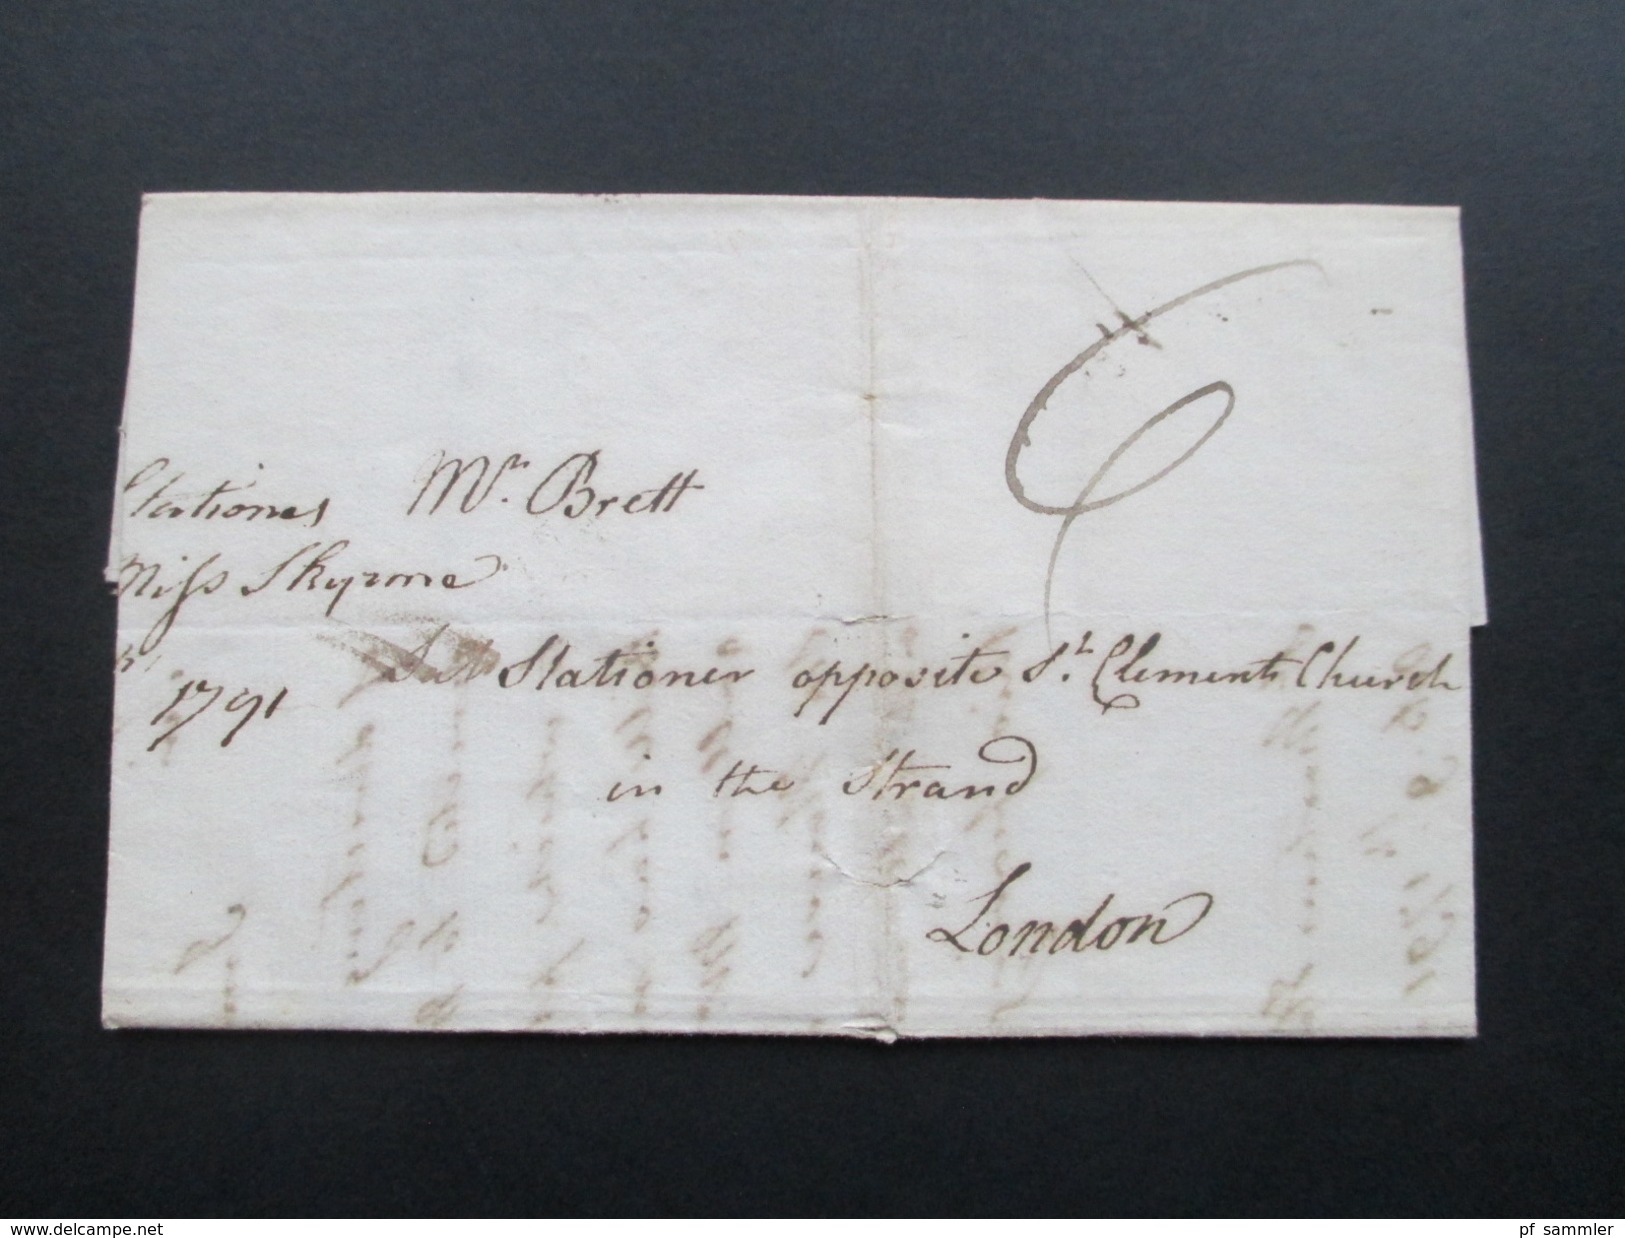 6
Stationer Mr. Brett
Miss Skyrme
1791
Stationer opposite St. Clements Church
in the Strand
London
www.delcampe.net
pf_sammler